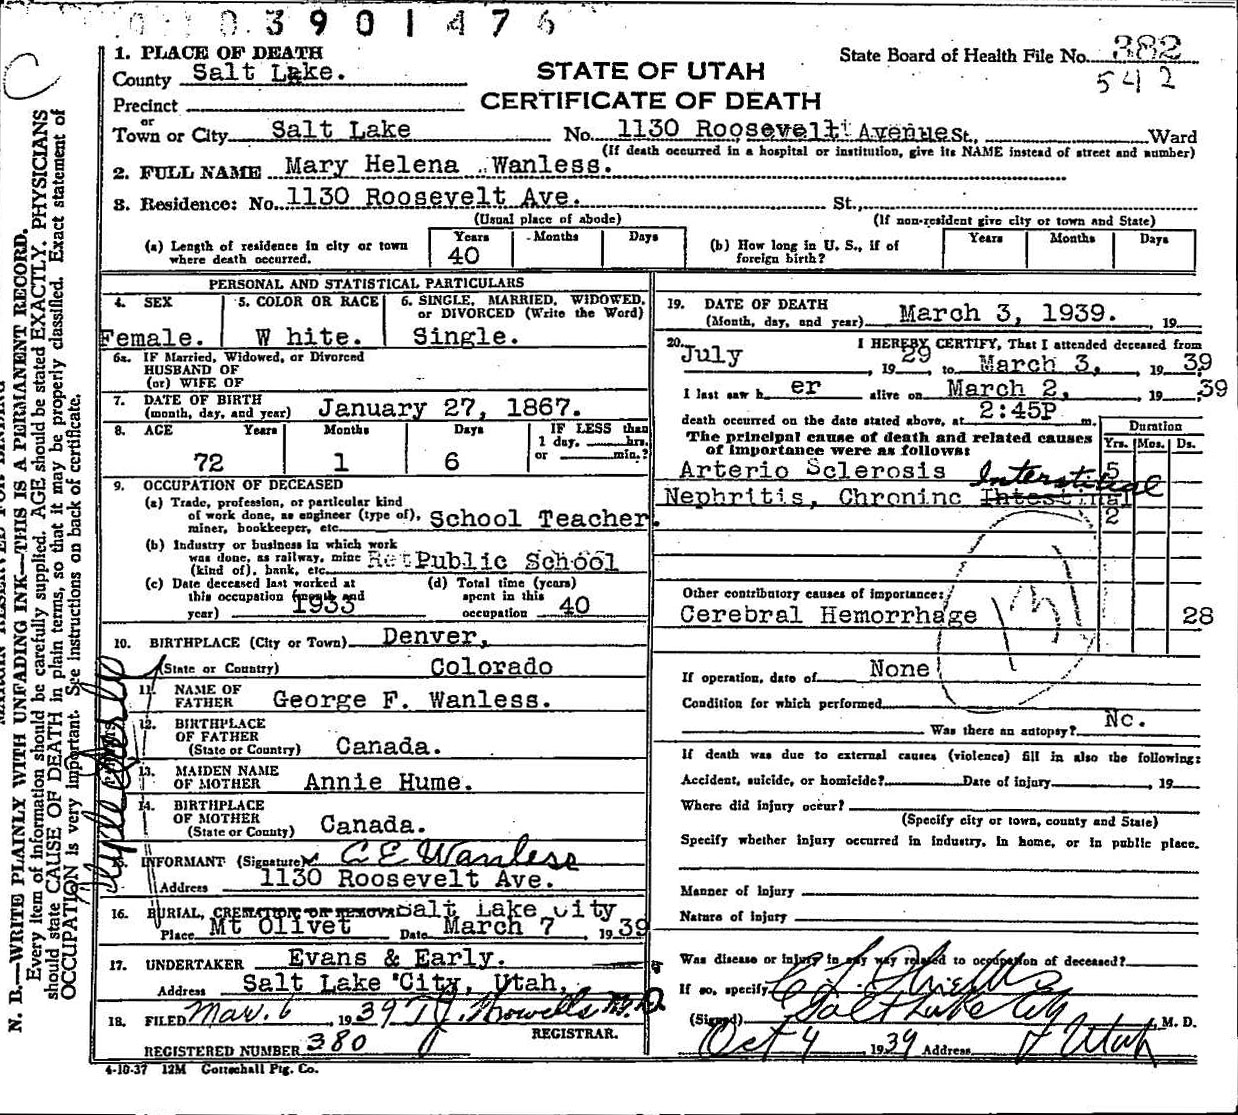 0 1 0 3 9 0 1 4 7 6
1. PLACE OF DEATH
County Salt Lake.
State Board of Health File No. 382
542
STATE OF UTAH
CERTIFICATE OF DEATH
Precinct
or
Town or City Salt Lake No. 1130 Roosevelt Avenue St., Ward
(If death occurred in a hospital or institution, give its NAME instead of street and number)
2. FULL NAME Mary Helena Wanless.
3. Residence: No. 1130 Roosevelt Ave. St.,
(Usual place of abode) (If non-resident give city or town and State)
(a) Length of residence in city or town where death occurred. Years 40 Months Days
(b) How long in U. S., if of foreign birth? Years Months Days
PERSONAL AND STATISTICAL PARTICULARS
4. SEX Female.
5. COLOR OR RACE W hite.
6. SINGLE, MARRIED, WIDOWED, or DIVORCED (Write the Word) Single.
6a. IF Married, Widowed, or Divorced
HUSBAND OF
(or) WIFE OF
7. DATE OF BIRTH
(month, day, and year) January 27, 1867.
8. AGE Years Months Days IF LESS than
1 day, hrs.
or min.?
72 1 6
9. OCCUPATION OF DECEASED
(a) Trade, profession, or particular kind
of work done, as engineer (type of),
miner, bookkeeper, etc. School Teacher.
(b) Industry or business in which work
was done, as railway, mine
(kind of), bank, etc. Ret Public School
(c) Date deceased last worked at
this occupation (month and
year) 1933
(d) Total time (years)
spent in this
occupation 40
10. BIRTHPLACE (City or Town) Denver,
(State or Country) Colorado
11. NAME OF
FATHER George F. Wanless.
12. BIRTHPLACE
OF FATHER
(State or Country) Canada.
13. MAIDEN NAME
OF MOTHER Annie Hume.
14. BIRTHPLACE
OF MOTHER
(State or Country) Canada.
15. INFORMANT (Signature) C E Wanless
Address 1130 Roosevelt Ave.
16. BURIAL, CREMATION OR REMOVAL Salt Lake City
Place Mt Olivet Date March 7, 1939
17. UNDERTAKER Evans & Early.
Address Salt Lake City, Utah,
18. FILED Mar. 6 1939 T J. Howells M.D.
REGISTRAR.
REGISTERED NUMBER 380
4-10-37 12M Gottschall Ptg. Co.
19. DATE OF DEATH
(Month, day, and year) March 3, 1939. , 19
20. I HEREBY CERTIFY, That I attended deceased from
July , 1929 to March 3, , 1939
I last saw h er alive on March 2, , 19 39
death occurred on the date stated above, at 2:45P m.
The principal cause of death and related causes
of importance were as follows:
Duration
Yrs. Mos. Ds.
Arterio Sclerosis 5
Interstitial
Nephritis, Chroninc Intestinal
2
Other contributory causes of importance:
Cerebral Hemorrhage 28
131
If operation, date of None
Condition for which performed
Was there an autopsy? No.
If death was due to external causes (violence) fill in also the following:
Accident, suicide, or homicide? Date of injury , 19
Where did injury occur?
(Specify city or town, county and State)
Specify whether injury occurred in industry, in home, or in public place.
Manner of injury
Nature of injury
Was disease or injury in any way related to occupation of deceased?
If so, specify
(Signed) , M. D.
Salt Lake City
Oct 4 1939 Address Utah
N. B.—WRITE PLAINLY WITH UNFADING INK—THIS IS A PERMANENT RECORD.
Every item of information should be carefully supplied. AGE should be stated EXACTLY. PHYSICIANS
should state CAUSE OF DEATH in plain terms, so that it may be properly classified. Exact statement of
OCCUPATION is very important. See instructions on back of certificate.
MARGIN RESERVED FOR BINDING